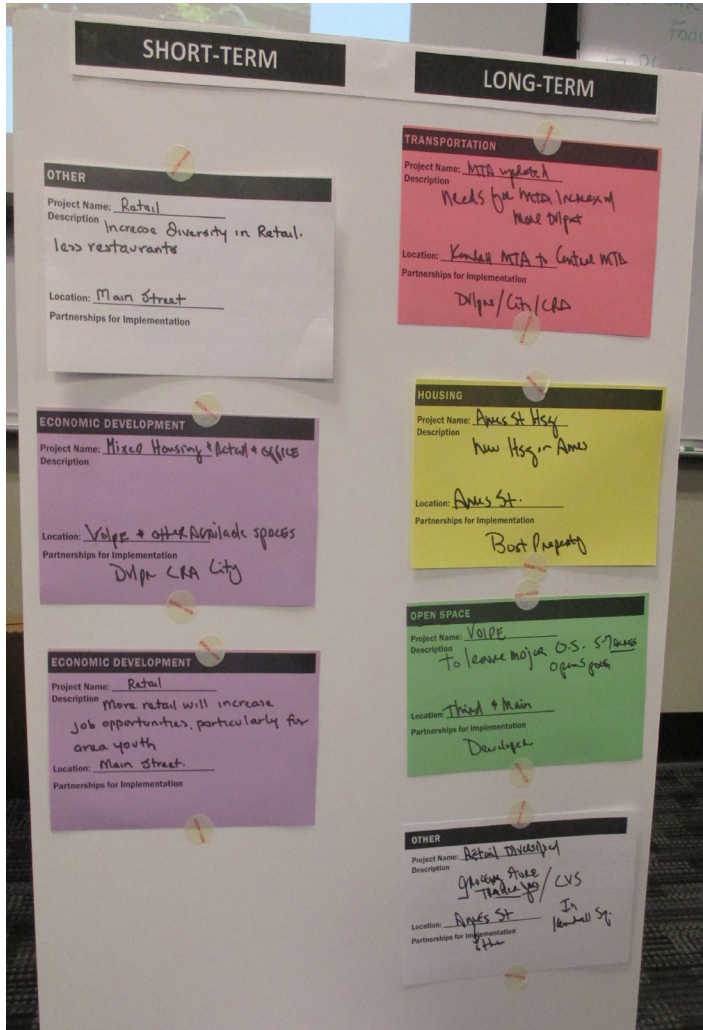 SHORT-TERM
OTHER
Project Name: Retail
Description Increase Diversity in Retail.
less restaurants
Location: Main Street
Partnerships for Implementation
ECONOMIC DEVELOPMENT
Project Name: Mixed Housing & Retail & OFFICE
Description
Location: Volpe & other Available spaces
Partnerships for Implementation
Dvlpr CRA City
ECONOMIC DEVELOPMENT
Project Name: Retail
Description More retail will increase
job opportunities, particularly for
area youth
Location: Main Street.
Partnerships for Implementation
LONG-TERM
TRANSPORTATION
Project Name: MTA
Description
Needs for MTA Increase
More
Location: Kendall MTA to Central MTA
Partnerships for Implementation
/City/CRA
HOUSING
Project Name: Ames St Hsg
Description
New Hsg in Ames
Location: Ames St.
Partnerships for Implementation
Bost Property
OPEN SPACE
Project Name: VOLPE
Description To leave major O.S. 5-7 acres
open space
Location: Third & Main
Partnerships for Implementation
Developer
OTHER
Project Name: Retail
Description
grocery store
Trader Joes / CVS
In
Kendall Sq.
Location: Ames St
Partnerships for Implementation
other
Food